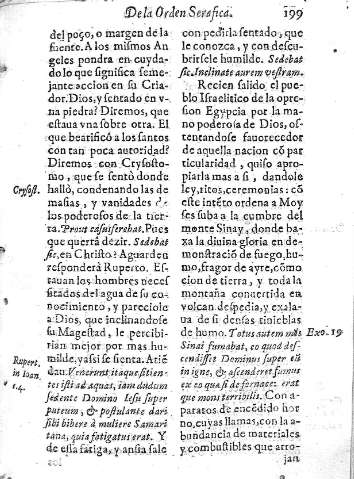 De la Orden Serafica. 199
del poço, o margen de la
fuente. A los mismos An
geles pondra en cuyda-
do lo que significa seme-
jante accion en su Cria-
dor. Dios, y sentado en v
na piedra? Diremos, que
estaua vna sobre otra. El
que beatificò a los santos
con tan poca autoridad?
Diremos con Crysosto-
mo, que se sentò donde
hallò, condenando las de
masias, y vanidades de
los poderosos de la tier-
ra. Prout casu iserebas. Pues
que querrà dezir. Sedebat
sic, en Christo? Aguarden
responderà Ruperto. Es-
tauan los hombres neces
sitados del agua de su co
nocimiento, y pareciole
a Dios, que inclinandose
su Magestad, le percibi-
rian mejor por mas hu-
milde, y assi se sienta. Atiē
dan. Venerunt itaque sitien-
tes isti ad aquas, iam dudum
sedente Domino Iesu super
puteum, & postulante dari
sibi bibere à muliere Samari
tana, quia fatigatus erat. Y
de essa fatiga, y ansia sale
Crysost.
Rupert.
in Ioan.
1.4.
con pedirla sentado, que
le conozca, y con descu-
brirsele humilde. Sedebat
sic. Inclinate aurem vestram.
Recien salido el pue-
blo Israelitico de la opre-
sion Egypcia por la ma-
no poderosa de Dios, os-
tentandose fauorecedor
de aquella nacion cō par
ticularidad, quiso apro-
piarla mas a si, dandole
ley, ritos, ceremonias: cō
este intēto ordena a Moy
ses suba a la cumbre del
monte Sinay, donde ba-
xa la diuina gloria en de-
monstració de fuego, hu-
mo, fragor de ayre, cōmo
cion de tierra, y toda la
montaña conuertida en
volcan despedia, y exala-
ua de si densas tinieblas
de humo. Totus autem mōs
Sinai fumabat, eo quod des-
cendisset Dominus super eū
in igne, & ascenderet fumus
ex eo quasi de fornace: erat
que mons terribilis. Con a-
paratos de encēdido hor
no, cuyas llamas, con la a-
bundancia de materiales
y combustibles que arro-
jan
Exo. 19